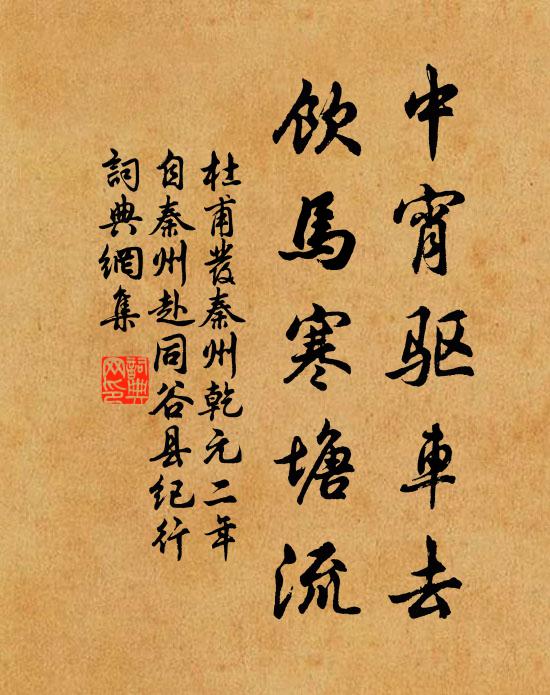 中宵驱車去
飲馬寒塘流
杜甫發秦州乾元二年
自秦州赴同谷县纪行
詞典網集
詞典
网印